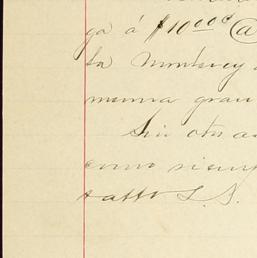 ga á $10000 @
la Monterey
misma gran
Sin otro a
como siemp
s atto S. S.